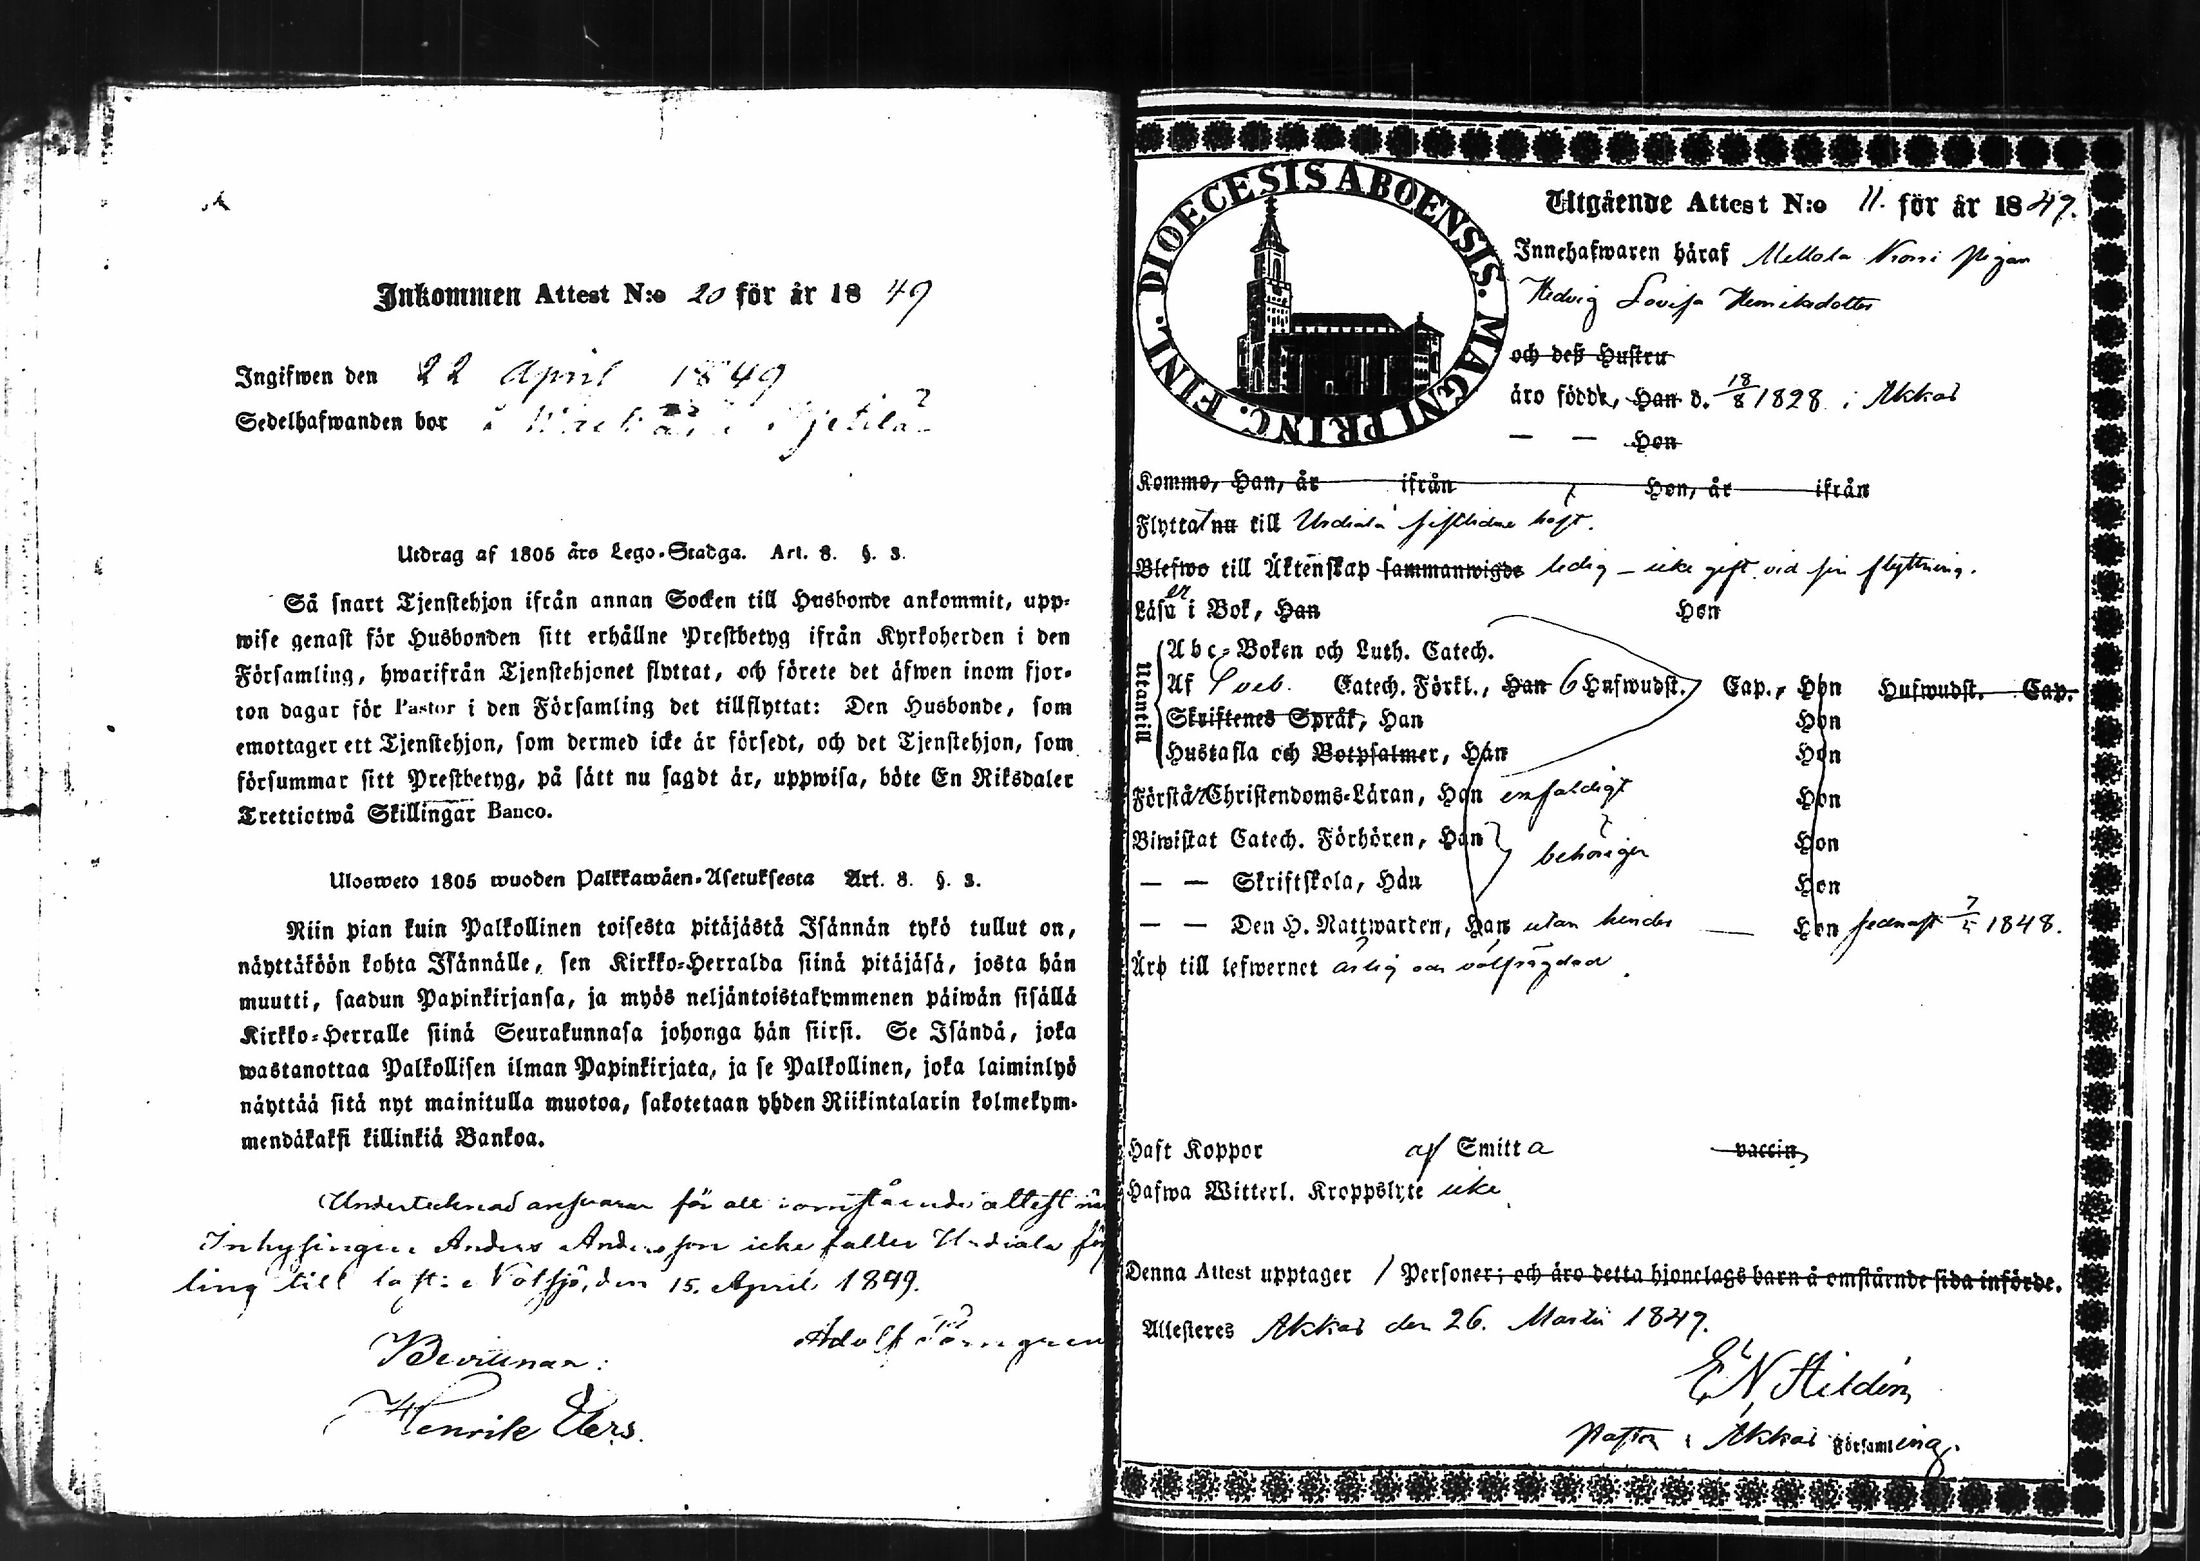 Inkommen Attest N:o 20 för år 18 49
Ingifwen den 22 April 1849
Sedelhafwanden bor i
Utdrag af 1805 års Lego-Stadga. Art. 8. §. 3.
Så snart Tjenstehjon ifrån annan Socken till Husbonde ankommit, upp-
wise genast för Husbonden sitt erhållne Prestbetyg ifrån Kyrkoherden i den
Församling, hwarifrån Tjenstehjonet flyttat, och förete det äfwen inom fjor-
ton dagar för Pastor i den Församling det tillflyttat: Den Husbonde, som
emottager ett Tjenstehjon, som dermed icke är försedt, och det Tjenstehjon, som
försummar sitt Prestbetyg, på sätt nu sagdt är, uppwisa, böte En Riksdaler
Trettiotwå Skillingar Banco.
Ulosweto 1805 wuoden Palkkawäen-Asetuksesta Art. 8. §. 3.
Niin pian kuin Palkollinen toisesta pitäjästä Isännän tykö tullut on,
näyttäköön kohta Isännälle, sen Kirkko-Herralda siinä pitäjäsä, josta hän
muutti, saadun Papinkirjansa, ja myös neljäntoistakymmenen päiwän sisällä
Kirkko-Herralle siinä Seurakunnasa johonga hän siirsi. Se Isändä, joka
wastanottaa Palkollisen ilman Papinkirjata, ja se Palkollinen, joka laiminlyö
näyttää sitä nyt mainitulla muotoa, sakotetaan yhden Riikintalarin kolmekym-
mendäkaksi killinkiä Bankoa.
Undertecknad ansvarar för att omstående attest
Inhysingen Anders Andersson icke faller Urdiala för
ling till last: Notsjö, den 15. April 1849.
Adolf Törngren
Bevittnar:
Henrik Elers.
DIOECESIS ABOENSIS. MAGNI PRINC. FINL.
Utgående Attest N:o 11. för år 18 49.
Innehafwaren häraf Mellola pigan
Hedvig Lovisa Henriksdotter
och deß Hustru
äro födde, Han d. 18/8 1828 i Akkas
— — Hon
Komma, Han, år ifrån Hon, år ifrån
Flyttat nu till Urdiala sistlidne höst.
Blefwo till Äktenskap sammanwigde ledig – icke gift vid sin flyttning.
Läsa er i Bok, Han Hon
Utantill
Abc-Boken och Luth. Catech.
Af Sveb. Catech. Förkl., Han 6 Hufwudst. Cap., Hon Hufwudst. Cap.
Skriftenes Språk, Han Hon
Hustafla och Botpsalmer, Han Hon
Förstår Christendoms-Läran, Han enfaldigt Hon
Biwistat Catech. Förhören, Han behörigen Hon
— — Skriftskola, Han Hon
— — Den H. Nattwarden, Han utan hinder — Hon sednast 7/5 1848.
Äro till lefwernet ärlig och välfrägdad.
Haft Koppor af Smitta vaccin
Hafwa Witterl. Kroppslyte icke.
Denna Attest upptager 1 Personer; och äro detta hjonelags barn å omstående sida införde.
Attesteres Akkas den 26. Martii 1849.
E N Hildén,
Pastor i Akkas Församling.